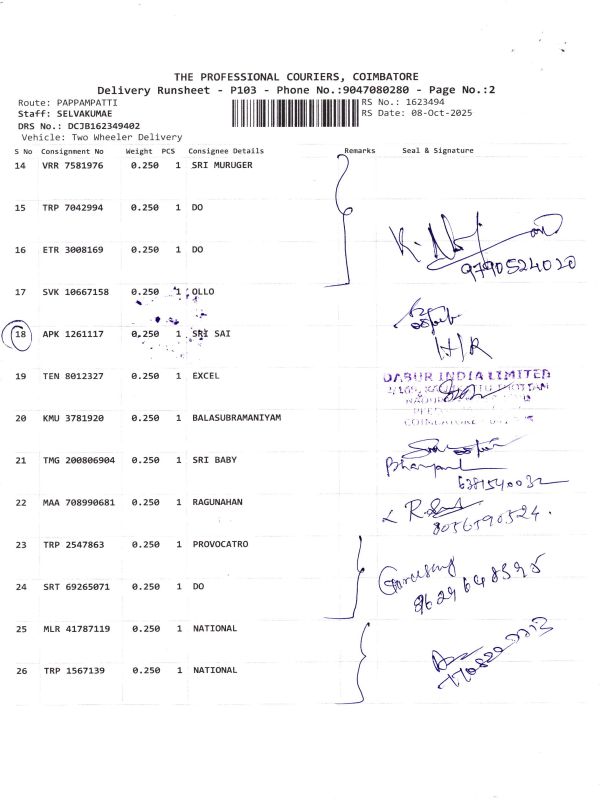 THE PROFESSIONAL COURIERS, COIMBATORE
Delivery Runsheet - P103 - Phone No.:9047080280 - Page No.:2
Route: PAPPAMPATTI RS No.: 1623494
Staff: SELVAKUMAE RS Date: 08-Oct-2025
DRS No.: DCJB162349402
Vehicle: Two Wheeler Delivery
S No Consignment No Weight PCS Consignee Details Remarks Seal & Signature
14 VRR 7581976 0.250 1 SRI MURUGER
15 TRP 7042994 0.250 1 DO
16 ETR 3008169 0.250 1 DO
9790524020
17 SVK 10667158 0.250 1 OLLO
18 APK 1261117 0.250 1 SRI SAI
H/R
19 TEN 8012327 0.250 1 EXCEL
DABUR INDIA LIMITED
20 KMU 3781920 0.250 1 BALASUBRAMANIYAM
21 TMG 200806904 0.250 1 SRI BABY
6381540032
22 MAA 708990681 0.250 1 RAGUNAHAN
8056590524.
23 TRP 2547863 0.250 1 PROVOCATRO
24 SRT 69265071 0.250 1 DO
25 MLR 41787119 0.250 1 NATIONAL
26 TRP 1567139 0.250 1 NATIONAL